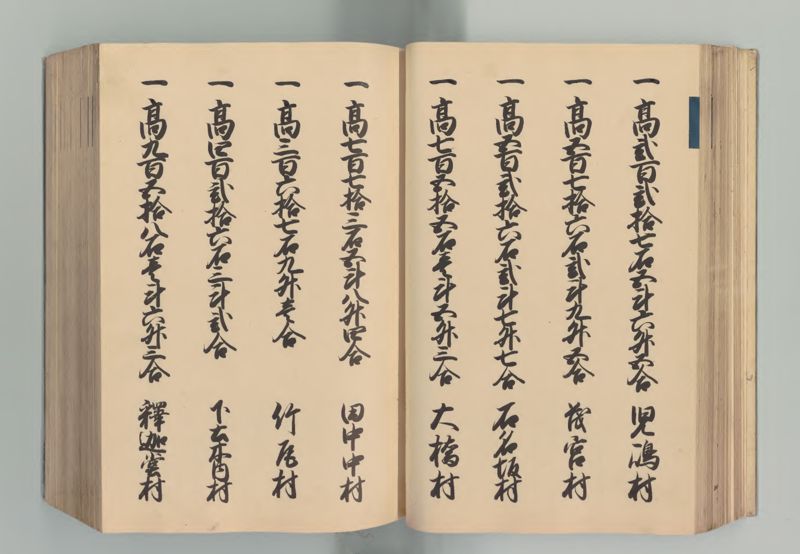 一 高弐百弐拾七石五斗六升五合 児嶋村
一 高五百七拾六石弐斗九升五合 茂宮村
一 高五百弐拾六石弐斗七升七合 石名坂村
一 高七百五拾五石壱斗五升三合 大橋村
一 高七百七拾三石五斗八升四合 田中中村
一 高三百六拾七石九升壱合 竹尾村
一 高四百弐拾六石三斗弐合 下土木内村
一 高九百五拾八石壱斗六升三合 釋迦堂村